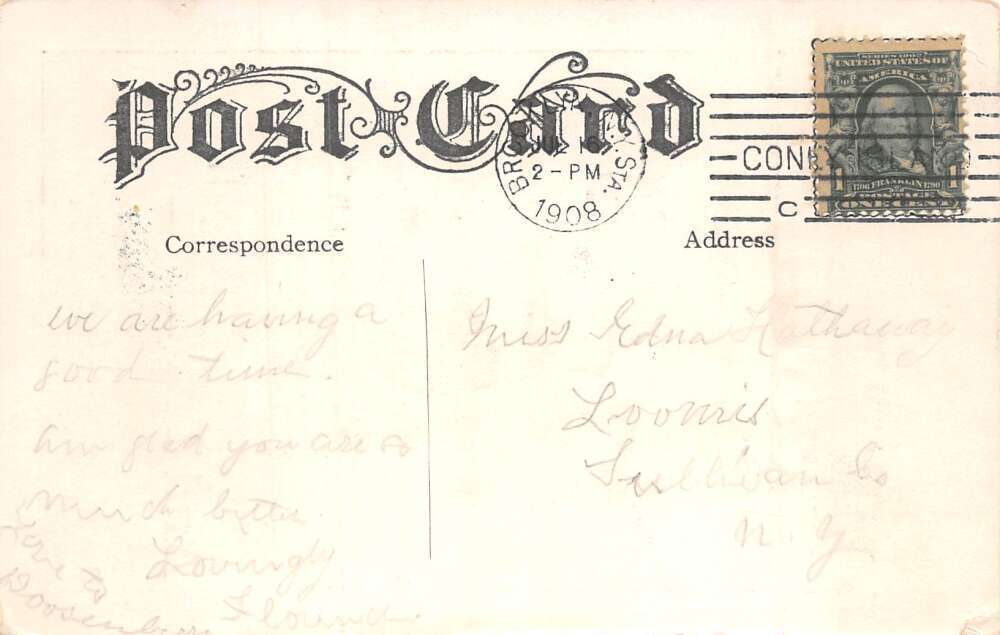 Post Card
BROOKLYN, N.Y. STA.
JUL 16
2-PM
1908
CONEY ISLAND
C
SERIES 1902
UNITED STATES OF
AMERICA
1 1706 FRANKLIN 1790 1
POSTAGE
ONE CENT
Correspondence
we are having a
good time.
am glad you are so
much better
Lovingly
Florence
Love to
Address
Miss Edna Hathaway
Loomis
Sullivan Co
N. Y.